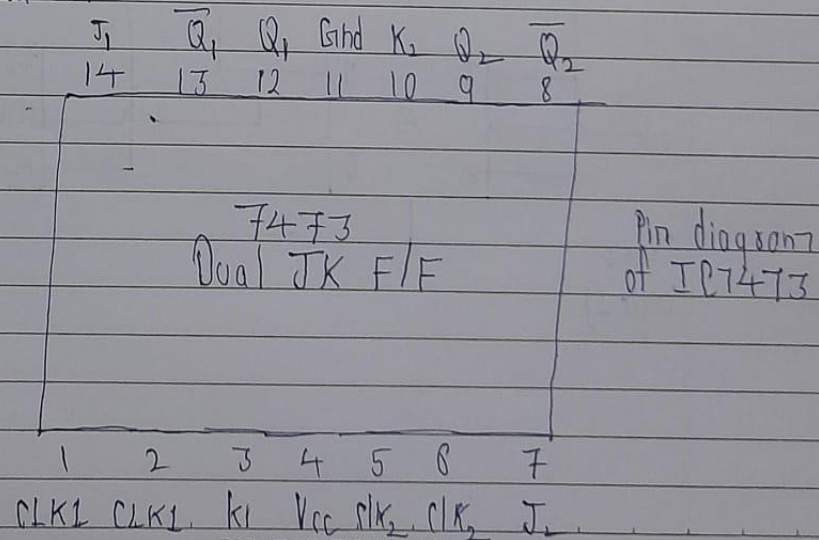 J₁ Q̅₁ Q₁ Gnd K₂ Q₂ Q̅₂
14 13 12 11 10 9 8
7473
Dual JK F/F
Pin diagram
of IC7473
1 2 3 4 5 6 7
CLK1 CLK1 k1 Vcc ClK₂ ClK₂ J₂